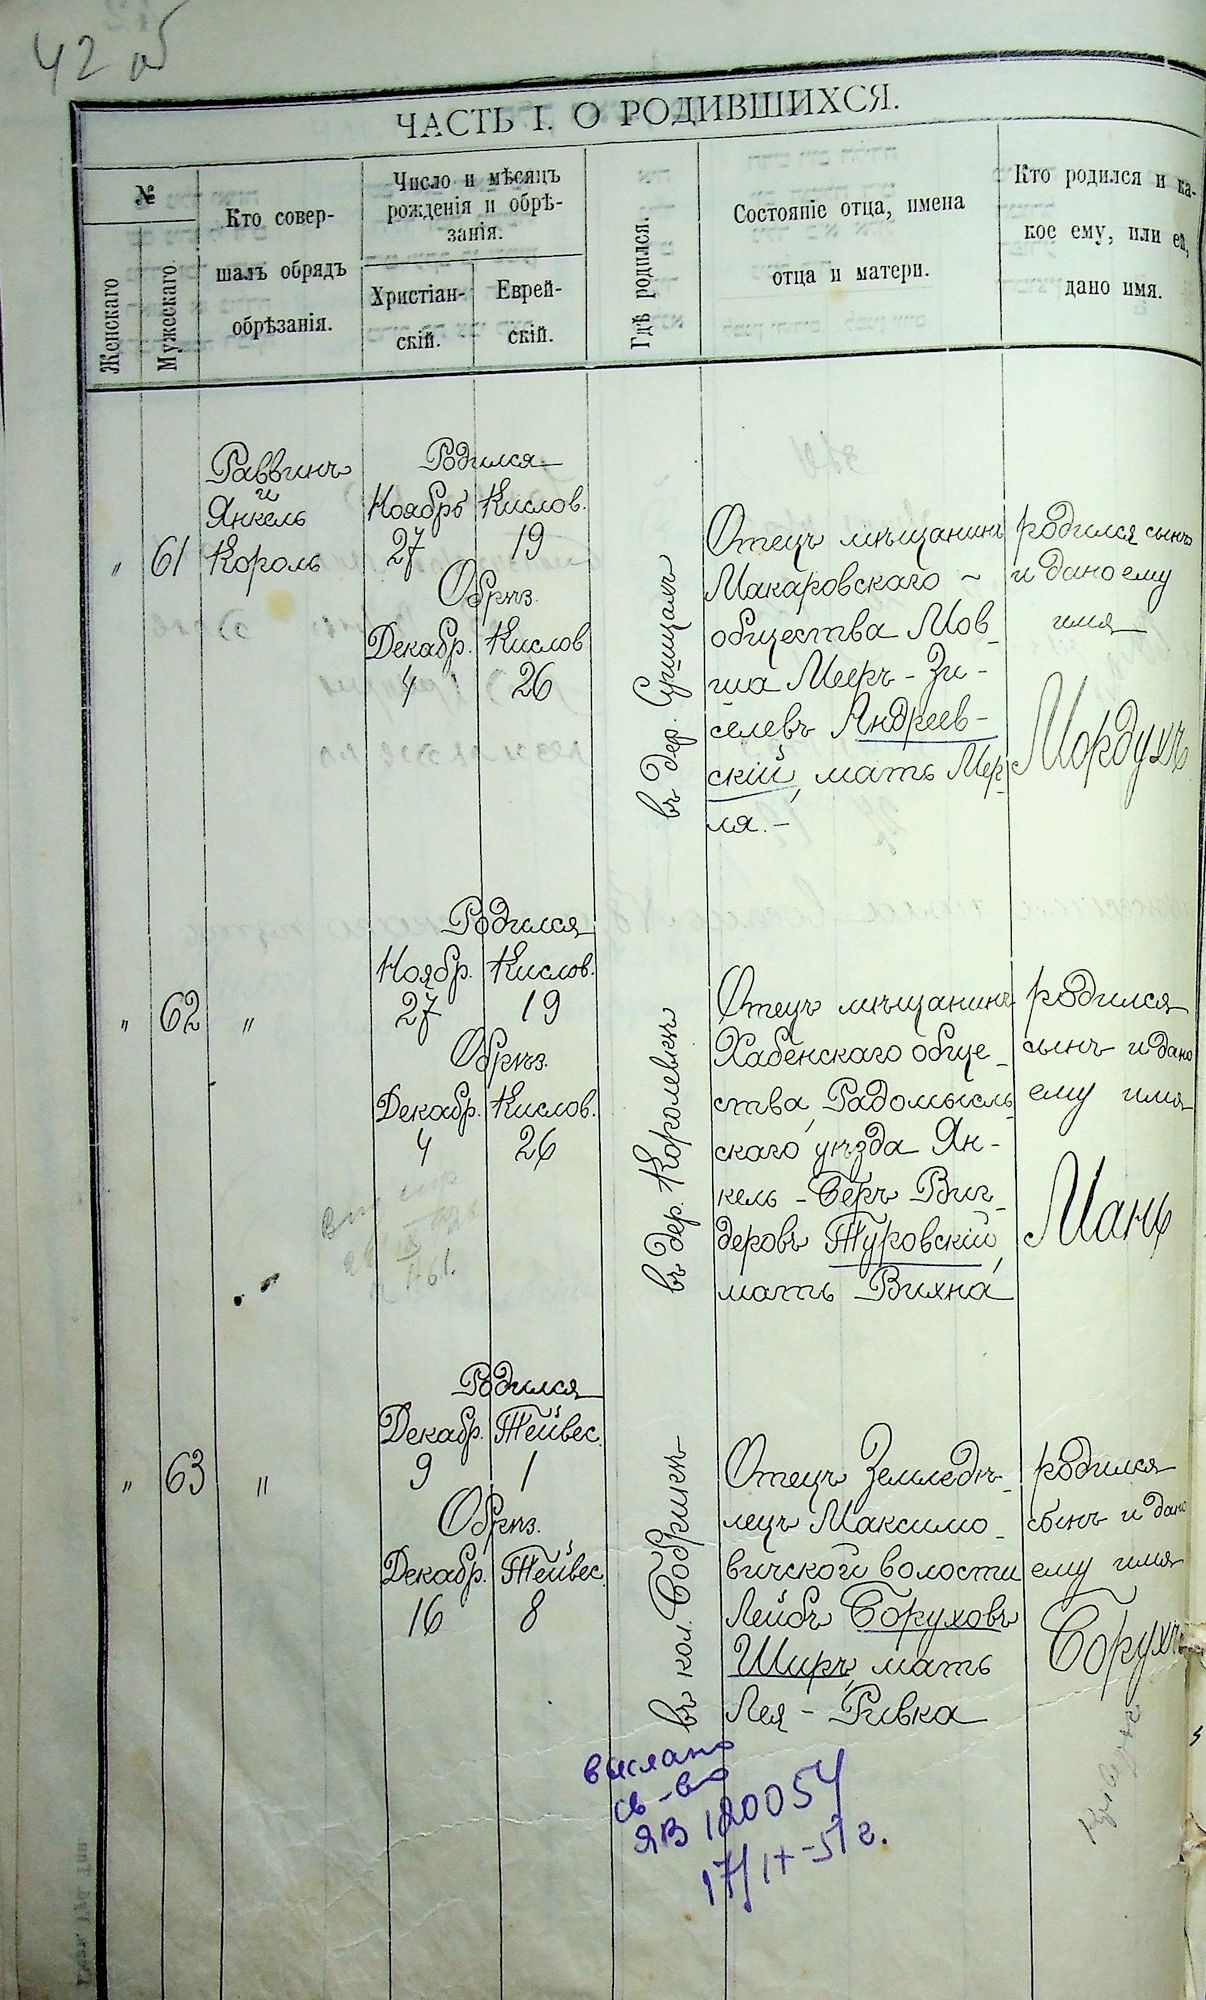 42 об
ЧАСТЬ I. О РОДИВШИХСЯ.
№
Женскаго
Мужескаго.
Кто совер-
шалъ обрядъ
обрѣзанія.
Число и мѣсяцъ
рожденія и обрѣ-
занія.
Христіан-
скій.
Еврей-
скій.
Гдѣ родился.
Состояніе отца, имена
отца и матери.
Кто родился и ка-
кое ему, или ей,
дано имя.
"
61
Раввинъ
и
Янкель
Король
Родился
Ноябрь Кислов.
27 19
Обрѣз.
Декабр. Кислов
4 26
въ дер.
Отецъ мѣщанинъ
Макаровскаго ~
общества Мов-
ша Меер - Зи-
селевъ Андреев-
скій, мать Мер-
ля. -
родился сынъ
и дано ему
имя
Мордухъ
"
62
"
Родился
Ноябр. Кислов.
27 19
Обрѣз.
Декабр. Кислов.
4 26
въ дер. Королевкѣ
Отецъ мѣщанинъ
Хабенскаго обще-
ства, Радомысль
скаго уѣзда Ян-
кель - Беръ Виг-
деровъ Туровскій,
мать Вихна
родился
сынъ и дано
ему имя
Манц
"
63
"
Родился
Декабр. Тейвес.
9 1
Обрѣз.
Декабр. Тейвес.
16 8
въ кол. Бобрикѣ
Отецъ Земледѣ-
лецъ Максимо-
вичской волости
Лейбъ Боруховъ
Ширъ, мать
Лея - Ривка
родился
сынъ и дано
ему имя
Борухъ
выслано
св-во
ЯВ 180054
17/IX-51 г.